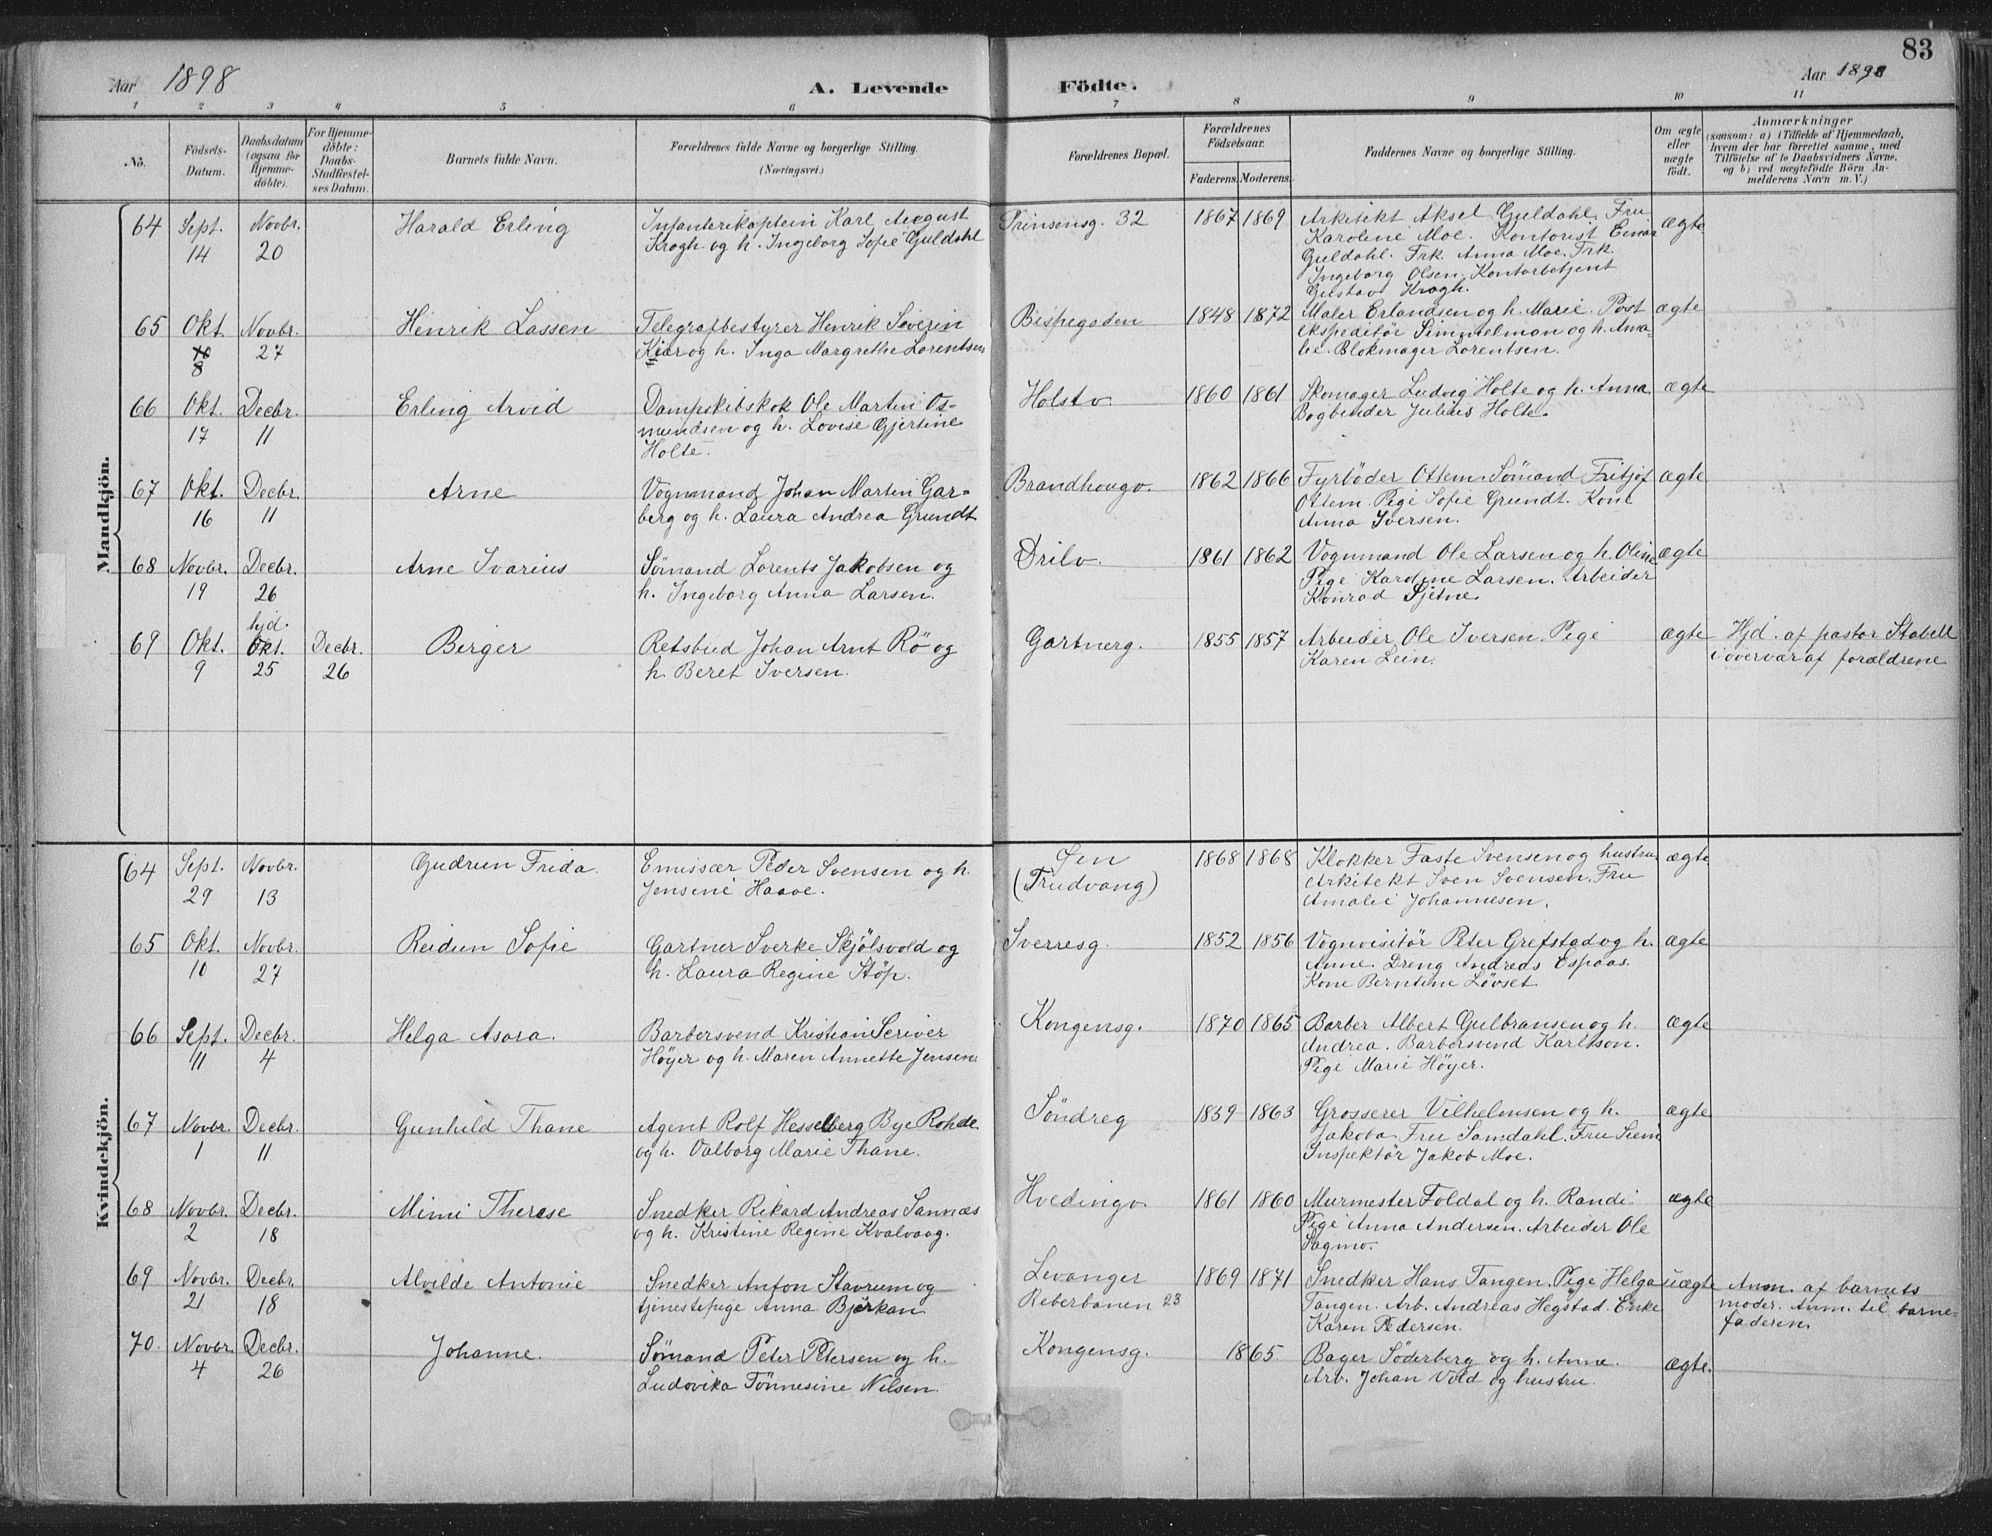 83
Aar 1898
A. Levende
Födte.
Aar 1898
1 2 3 4 5 6 7 8 9 10 11
No.
Födsels-
Datum.
Daabsdatum
(ogsaa for
Hjemme-
döbte).
For Hjemme-
döbte:
Daabs-
Stadfæstel-
ses Datum.
Barnets fulde Navn.
Forældrenes fulde Navne og borgerlige Stilling.
(Næringsvei.)
Forældrenes Bopæl.
Forældrenes
Födselsaar.
Faderens. Moderens.
Faddernes Navne og borgerlige Stilling.
Om ægte
eller
uægte
födt.
Anmærkninger
(saasom: a) i Tilfælde af Hjemmedaab,
hvem der har forrettet samme, med
Tilföielse af to Daabsvidners Navne,
og b) ved uægtefödte Börn An-
melderens Navn m. V.)
Mandkjön.
64 Sept. 14 Novbr. 20 Harald Erling
Infanterikaptein Karl August
Krogh og h. Ingeborg Sofie Guldahl
Prinsensg. 32 1867 1869
Arkitekt Aksel Guldahl. Fru
Karoline Moe. Kontorist Einar
Guldahl. Frk. Anna Moe. Frk.
Ingeborg Olsen. Kontorbetjent
Gustav Krogh.
ægte
65 Okt. 10 8 Novbr. 27 Henrik Lassen
Telegrafbestyrer Henrik Severin
Kiær og h. Inga Margrethe Lorentsen
Bispegaden 1848 1872
Maler Erlandsen og h. Marie. Post
ekspeditör Simmelman og h. Ama-
lie. Blokmager Lorentsen.
ægte
66 Okt. 17 Decbr. 11 Erling Arvid
Dampskibskok Ole Martin Os-
mundsen og h. Lovise Gjertine
Holte.
Holstv. 1860 1861
Skomager Ludvig Holte og h. Anna
Bogbinder Julius Holte.
ægte
67 Okt. 16 Decbr. 11 Arne
Vognmand Johan Martin Gar-
berg og h. Laura Andrea Grundt
Brandhougv. 1862 1866
Fyrböder Ottem. Sömand Fritjof
Ottem. Pige Sofie Grundt. Kone
Anna Iversen.
ægte
68 Novbr. 19 Decbr. 26 Arne Ivarius
Sömand Lorents Jakobsen og
h. Ingeborg Anna Larsen.
Drilv. 1861 1862
Vognmand Ole Larsen og h. Oline
Pige Karoline Larsen. Arbeider
Konrad Sjetne.
ægte
69 Okt. 9 hjd. Okt. 25 Decbr. 26 Berger
Retsbud Johan Arnt Rö og
h. Beret Iversen.
Gartnerg. 1855 1857
Arbeider Ole Iversen. Pige
Karen Lein.
ægte
Hjd. af pastor Stabell
i overvær af forældrene
Kvindekjön.
64 Sept. 29 Novbr. 13 Gudrun Frida.
Emissær Peder Svensen og h.
Jensine Haave.
Øen
(Trudvang)
1868 1868
Klokker Faste Svensen og hustru
Arkitekt Sven Svensen. Fru
Amalie Johannesen.
ægte
65 Okt. 10 Novbr. 27 Reidun Sofie
Gartner Sverke Skjölsvold og
h. Laura Regine Stöp.
Sverresg. 1852 1856
Vognvisitör Peter Grefstad og h.
Anne. Dreng Andreas Espaas.
Kone Berntine Lövset.
ægte
66 Sept. 11 Decbr. 4 Helga Asora.
Barbersvend Kristian Scriver
Höyer og h. Maren Annette Jensen
Kongensg. 1870 1865
Barber Albert Gulbransen og h.
Andrea. Barbersvend Karlsson.
Pige Marie Höyer.
ægte
67 Novbr. 1 Decbr. 11 Gunhild Thane
Agent Rolf Hesselberg Bye Rohde
og h. Valborg Marie Thane.
Söndreg 1839 1863
Grosserer Vilhelmsen og h.
Jakoba. Fru Samdahl. Fru Siem
Inspektör Jakob Moe.
ægte
68 Novbr. 2 Decbr. 18 Mimi Therese
Snedker Rikard Andreas Sannæs
og h. Kristine Regine Kvalvaag.
Hvedingv. 1861 1860
Murmester Foldal og h. Randi.
Pige Anna Andersen. Arbeider Ole
Sagmo.
ægte
69 Novbr. 21 Decbr. 18 Alvilde Antonie
Snedker Anton Stavrum og
tjenestepige Anna Bjerkan.
Levanger
Reberbanen 23
1869 1871
Snedker Hans Tangen. Pige Helga
Tangen. Arb. Andreas Hegstad. Enke
Karen Pedersen.
uægte
Anm. af barnets
moder. Anm. til barne-
faderen.
70. Novbr. 4 Decbr. 26 Johanne.
Sömand Peter Petersen og h.
Ludovika Tönnesine Nilsen.
Kongensg. 1865.
Bager Söderberg og h. Anne.
Arb. Johan Vold og hustru.
ægte.